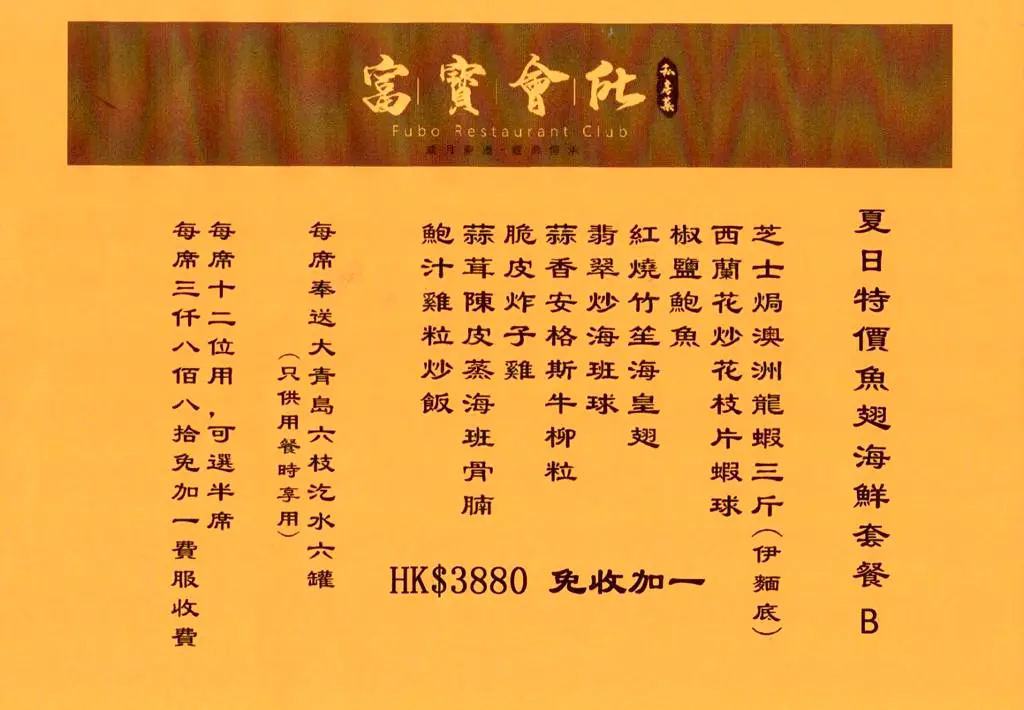 富寶會所
私房菜
Fubo Restaurant Club
夏日特價魚翅海鮮套餐B
芝士焗澳洲龍蝦三斤(伊麵底)
西蘭花炒花枝片蝦球
椒鹽鮑魚
紅燒竹笙海皇翅
翡翠炒海班球
蒜香安格斯牛柳粒
脆皮炸子雞
蒜茸陳皮蒸海班骨腩
鮑汁雞粒炒飯
HK$3880 免收加一
每席奉送大青島六枝汽水六罐
(只供用餐時享用)
每席十二位用,可選半席
每席三仟八佰八拾免加一費服收費